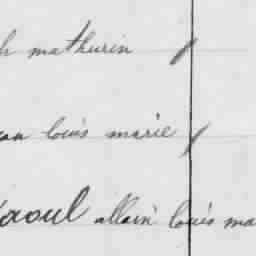 h mathurin
ean louis marie
Raoul allain louis ma